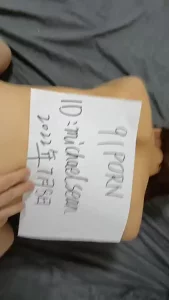 91PORN
ID:michaelsean
2022年7月9日